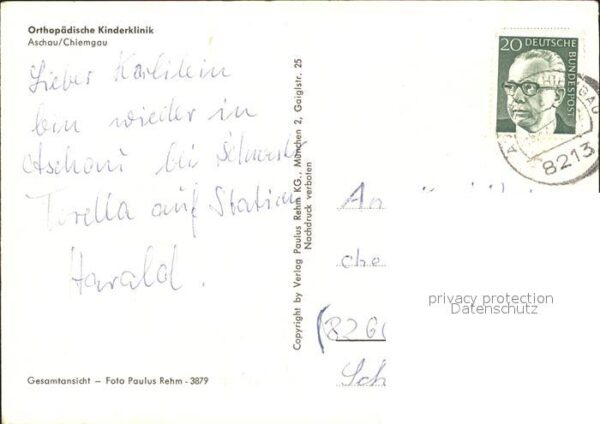 Orthopädische Kinderklinik
Aschau/Chiemgau
Lieber Karlilein
bin wieder in
Aschau bei Schwester
Torella auf Station
Harald.
Gesamtansicht – Foto Paulus Rehm - 3879
Copyright by Verlag Paulus Rehm KG., München 2, Gaiglstr. 25
Nachdruck verboten
20 DEUTSCHE
BUNDESPOST
8213
An
che
(826
Sch
privacy protection
Datenschutz